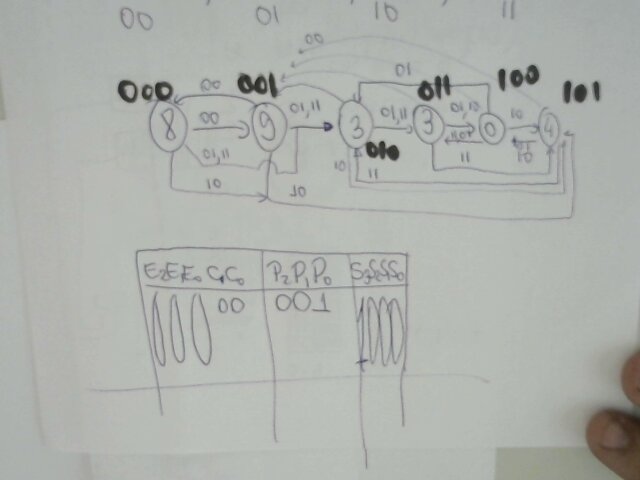 00 01 10 11
00
01
000 00 001 011 100 101
8 00 9 01,11 3 01,11 3 01,10 0 10 4
01,11 010 10 11 11 10
10 10
E2E1E0 C1C0 P2P1P0 S3S2S1S0
000 00 001 1000